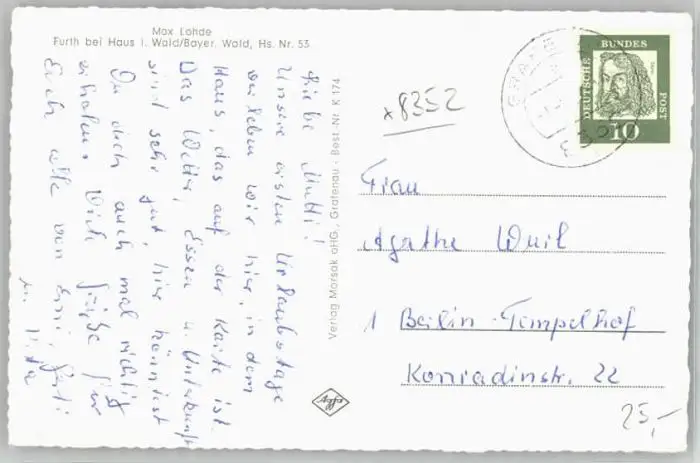 Max Lohde
Furth bei Haus i. Wald/Bayer. Wald, Hs. Nr. 53
Liebe Mutti!
Unsere ersten Urlaubstage
verleben wir hier, in dem
Haus, das auf der Karte ist.
Das Wetter, Essen u. Unterkunft
sind sehr gut, hier könntest
Du dich auch mal richtig
erholen. Viele Grüße für
Euch alle von
u.
Verlag Morsak oHG, Grafenau · Best. Nr. K 174
x 8352
GRAFEN
DEUTSCHE
BUNDES
POST
10
Frau
Agathe Weil
1 Berlin-Tempelhof
Konradinstr. 22
Agfa
25,-